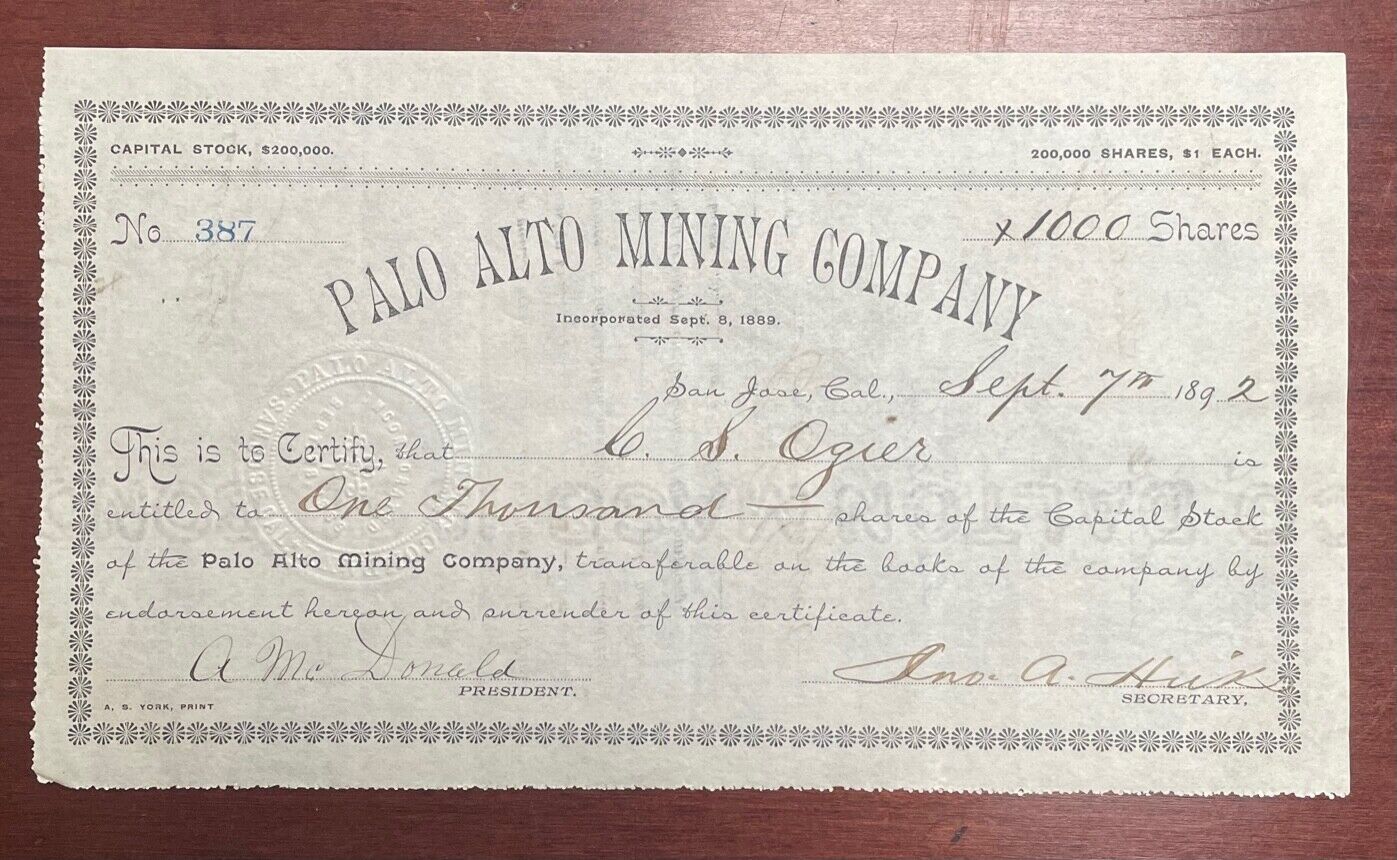 CAPITAL STOCK, $200,000.
200,000 SHARES, $1 EACH.
No 387
x 1000 Shares
PALO ALTO MINING COMPANY
Incorporated Sept. 8, 1889.
San Jose, Cal., Sept. 7th 1892
This is to Certify, that C. S. Ogier is
entitled to One Thousand shares of the Capital Stock
of the Palo Alto Mining Company, transferable on the books of the company by
endorsement hereon and surrender of this certificate.
A Mc Donald
PRESIDENT.
Jno. A. Hicks
SECRETARY,
A. S. YORK, PRINT
PALO ALTO